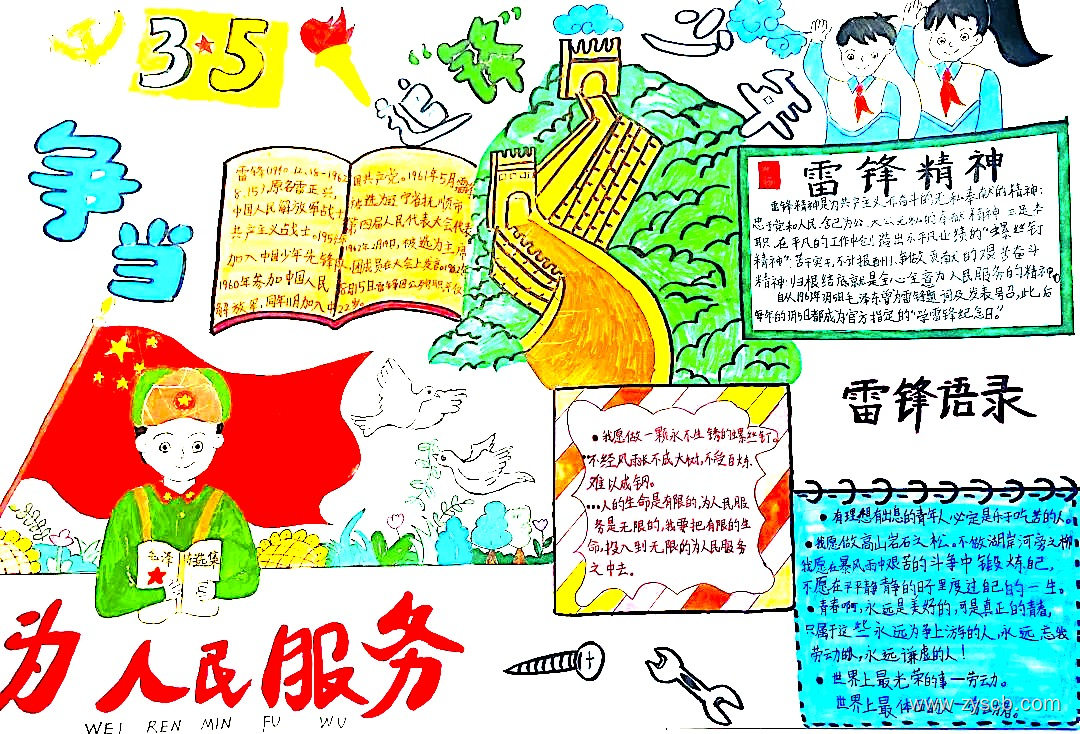 3·5
追锋少年
争当
雷锋(1940.12.18-1962.
8.15),原名雷正兴,
中国人民解放军战士
共产主义战士。1954年
加入中国少年先锋队,
1960年参加中国人民
解放军,同年11月加入中
国共产党。1961年5月雷锋
被选为辽宁省抚顺市
第四届人民代表大会代表
1962年2月19日,被选为主席
团成员在大会上发言。1962年
8月15日雷锋因公殉职年仅
22岁。
雷锋精神
雷锋精神是为共产主义而奋斗的无私奉献的精神;
忠于党和人民、舍己为公、大公无私的奉献精神;立足本
职、在平凡的工作中创造出不平凡业绩的“螺丝钉
精神”;苦干实干、不计报酬、争做贡献的艰苦奋斗
精神;归根结底就是全心全意为人民服务的精神。
自从1963年3月5日毛泽东曾为雷锋题词及发表号召,此后
每年的3月5日都成为官方指定的“学雷锋纪念日。”
雷锋语录
•我愿做一颗永不生锈的螺丝钉。
•不经风雨,长不成大树,不受百炼,
难以成钢。
•人的生命是有限的,为人民服
务是无限的,我要把有限的生
命,投入到无限的为人民服务
之中去。
•有理想有出息的青年人必定是乐于吃苦的人。
•我愿做高山岩石之松。不做湖岸河旁之柳
我愿在暴风雨中艰苦的斗争中锻炼自己,
不愿在平平静静的日子里度过自己的一生。
•青春啊,永远是美好的,可是真正的青春,
只属于这些永远力争上游的人,永远忘我
劳动的人,永远谦虚的人!
•世界上最光荣的事—劳动。
世界上最体面的人—劳动者。
毛泽东选集
为人民服务
WEI REN MIN FU WU
www.zyscb.com